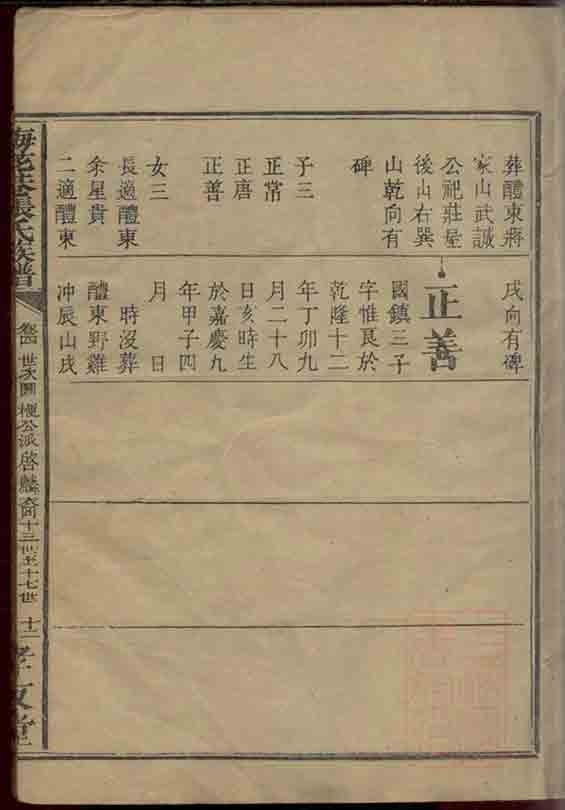 葬醴東蔣
家山武誠
公祀莊屋
後山右巽
山乾向有
碑
子三
正常
正唐
正善
女三
長適醴東
余星貴
二適醴東
戌向有碑
正善
國鎮三子
字惟良於
乾隆十二
年丁卯九
月二十八
日亥時生
於嘉慶九
年甲子四
月　日
時沒葬
醴東野雞
冲辰山戌
張氏族譜
卷四　世次圖　派啓麟裔十三世至十七世　十二